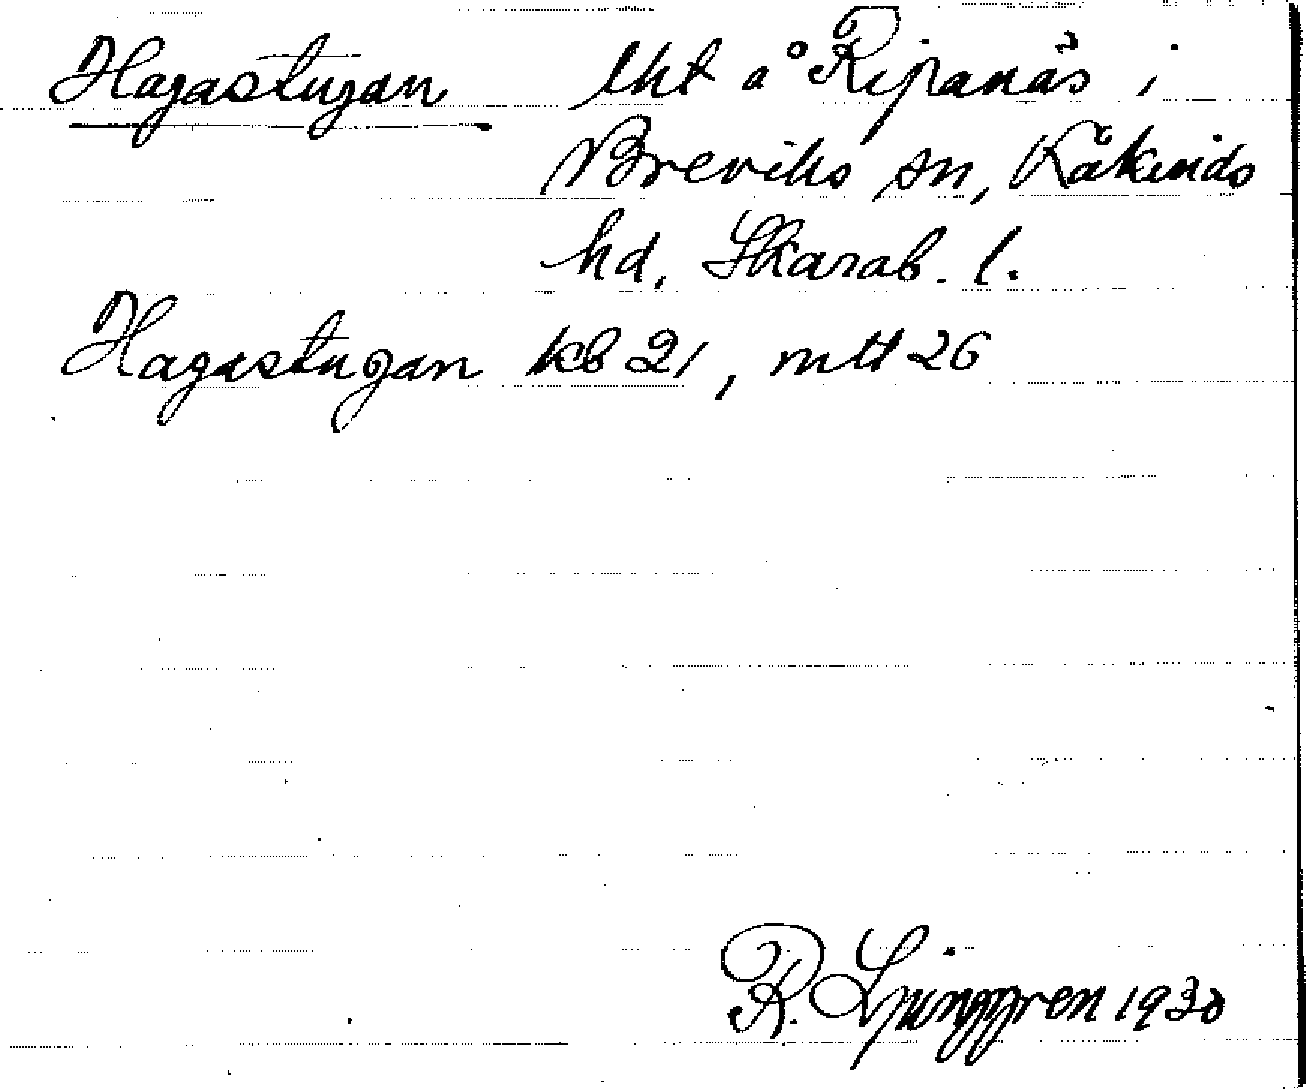 Hagastugan lht å Ripanäs i
Breviks sn, Kåkinds
hd, Skarab. l.
Hagastugan kb 21, mtt 26
R. Ljunggren 1930